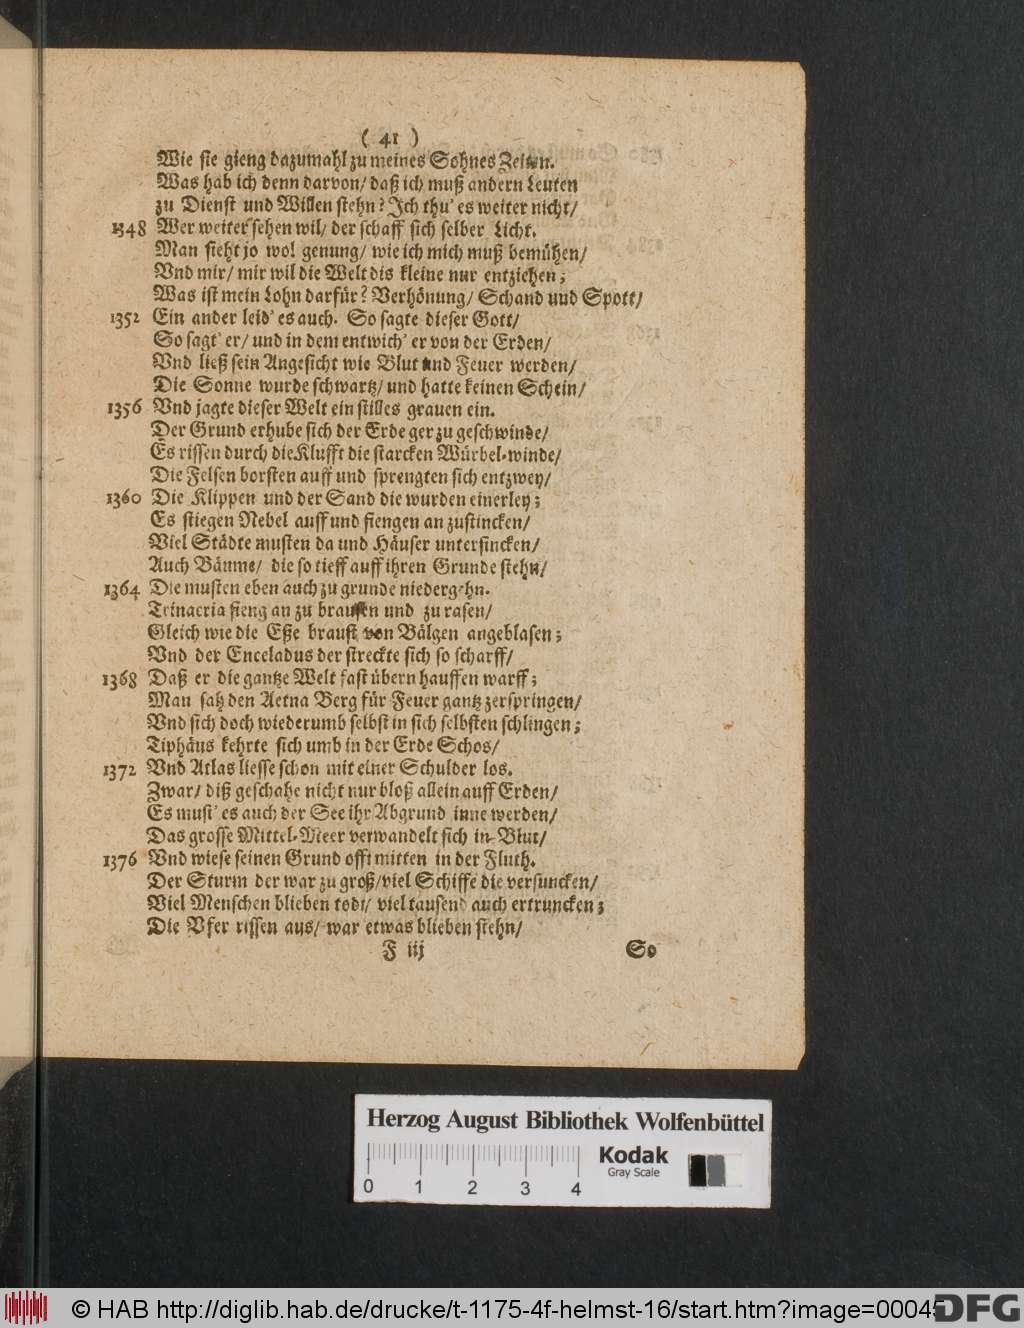 ( 41 )
Wie sie gieng dazumahl zu meines Sohnes Zeiten.
Was hab ich denn darvon/ daß ich muß andern Leuten
zu Dienst und Willen stehn? Ich thu' es weiter nicht/
1348 Wer weiter sehen wil/ der schaff sich selber Licht.
Man sieht jo wol genung/ wie ich mich muß bemühen/
Vnd mir/ mir wil die Welt dis kleine nur entziehen;
Was ist mein Lohn darfür? Verhönung/ Schand und Spott/
1352 Ein ander leid' es auch. So sagte dieser Gott/
So sagt' er/ und in dem entwich' er von der Erden/
Vnd ließ sein Angesicht wie Blut und Feuer werden/
Die Sonne wurde schwartz/ und hatte keinen Schein/
1356 Vnd jagte dieser Welt ein stilles grauen ein.
Der Grund erhube sich der Erde ger zu geschwinde/
Es rissen durch die Klufft die starcken Würbel-winde/
Die Felsen borsten auff und sprengten sich entzwey/
1360 Die Klippen und der Sand die wurden einerley;
Es stiegen Nebel auff und fiengen an zustincken/
Viel Städte musten da und Häuser untersincken/
Auch Bäume/ die so tieff auff ihren Grunde stehn/
1364 Die musten eben auch zu grunde niedergehn.
Trinacria fieng an zu brausen und zu rasen/
Gleich wie die Eße braust von Bälgen angeblasen;
Vnd der Enceladus der streckte sich so scharff/
1368 Daß er die gantze Welt fast übern hauffen warff;
Man sah den Aetna Berg für Feuer gantz zerspringen/
Vnd sich doch wiederumb selbst in sich selbsten schlingen;
Tiphäus kehrte sich umb in der Erde Schos/
1372 Vnd Atlas liesse schon mit einer Schulder los.
Zwar/ diß geschahe nicht nur bloß allein auff Erden/
Es must' es auch der See ihr Abgrund inne werden/
Das grosse Mittel-Meer verwandelt sich in Blut/
1376 Vnd wiese seinen Grund offt mitten in der Fluth.
Der Sturm der war zu groß/ viel Schiffe die versuncken/
Viel Menschen blieben todt/ viel tausend auch ertruncken;
Die Vfer rissen aus/ war etwas blieben stehn/
F iij So
Herzog August Bibliothek Wolfenbüttel
Kodak
Gray Scale
0 1 2 3 4
© HAB http://diglib.hab.de/drucke/t-1175-4f-helmst-16/start.htm?image=00045
DFG